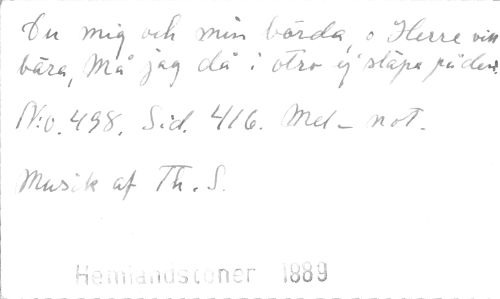 Du mig och min börda, o Herre vill
bära, Må jag då i otro ej släpa på den.
N:o. 498. Sid. 416. Mel- not.
Musik af Th. S.
Hemlandstoner 1889